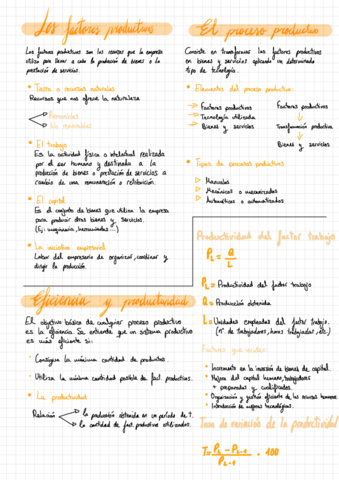 Los factores productivos
Los factores productivos son los recursos que la empresa
utiliza para llevar a cabo la producción de bienes o la
prestación de servicios.
• Tierra o recursos naturales
Recursos que nos ofrece la naturaleza
Renovables
No renovables
• El trabajo
Es la actividad física o intelectual realizada
por el ser humano y destinada a la
producción de bienes o prestación de servicios a
cambio de una remuneración o retribución.
• El capital
Es el conjunto de bienes que utiliza la empresa
para producir otros bienes y servicios.
(Ej: maquinaria, herramientas...)
• La iniciativa empresarial
Labor del empresario de organizar, combinar y
dirigir la producción.
Eficiencia y productividad
El objetivo básico de cualquier proceso productivo
es la eficiencia. Se entiende que un sistema productivo
es más eficiente si:
· Consigue la máxima cantidad de productos.
· Utiliza la mínima cantidad posible de fact. productivos.
• La productividad
Relación
la producción obtenida en un período de t.
la cantidad de fact. productivos utilizados.
El proceso productivo
Consiste en transformar los factores productivos
en bienes y servicios aplicando un determinado
tipo de tecnología.
• Elementos del proceso productivo:
→ Factores productivos
→ Tecnología utilizada
→ Bienes y servicios
Factores productivos
↓
Transformación productiva
↓
Bienes y servicios
• Tipos de procesos productivos
▷ Manuales
▷ Mecánicos o mecanizados
▷ Automáticos o automatizados
Productividad del factor trabajo
PL = Q/L
PL = Productividad del factor trabajo
Q = Producción obtenida
L = Unidades empleadas del factor trabajo.
(nº de trabajadores, horas trabajadas, etc)
Factores que inciden:
· Incremento en la inversión de bienes de capital.
· Mejora del capital humano, trabajadores
+ preparados y cualificados.
· Organización y gestión eficiente de los recursos humanos
· Introducción de mejoras tecnológicas.
Tasa de variación de la productividad